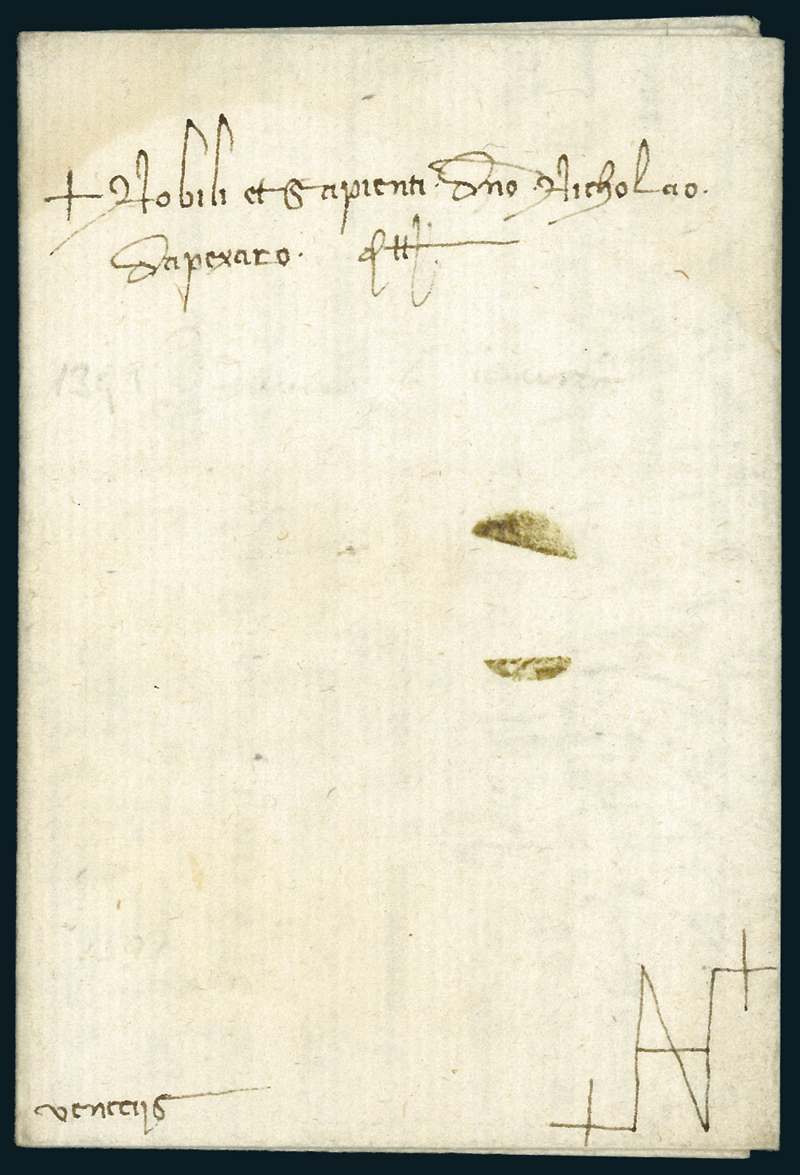 + Nobili et Sapienti. dno Nicholao.
dapexaro.
veneciis
N